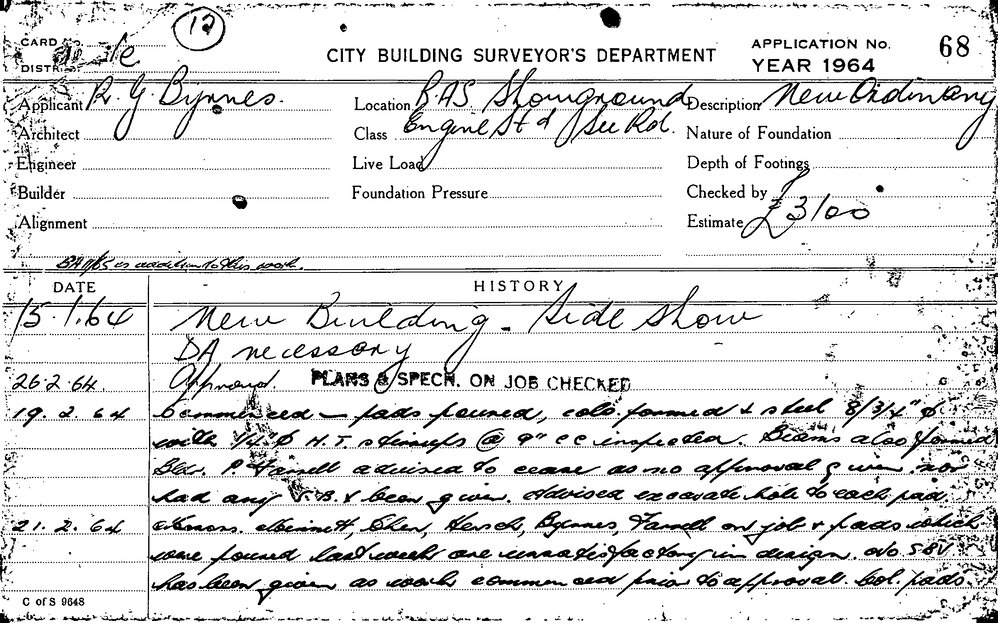 12
CARD No.
DISTRICT
CITY BUILDING SURVEYOR'S DEPARTMENT
APPLICATION No. 68
YEAR 1964
Applicant R. G Byrnes.
Location R.A.S. Showground
Description New Ordinary
Architect
Class Engine St & Rd.
Nature of Foundation
Engineer
Live Load
Depth of Footings
Builder
Foundation Pressure
Checked by
Alignment
Estimate £3100
is addition to this work.
DATE
HISTORY
15.1.64 New Building - Side Show
DA necessary
26.2.64 Approved PLANS & SPECN. ON JOB CHECKED
19.2.64 Commenced - pads poured, cols formed & steel 8/3/4" φ
with 1/4" φ H.T. stirrups @ 9" c c inspected. Beams also formed
Bldr. P. Farrell advised to cease as no approval given nor
had any been given. Advised excavate hole to each pad
21.2.64 Chen, Hersch, Byrnes, Farrell on job & pads which
were poured last week are unsatisfactory in design. No
has been given as work commenced prior to approval. Col. pads
C of S 9648